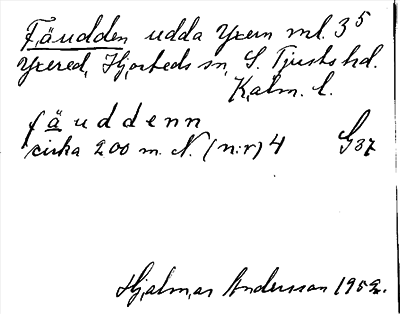 Fäudden udda Yxern ml. 3⁵
Yxered, Hjorteds sn, S. Tjusts hd.
Kalm. l.
f ä u d d e n n
cirka 200 m. N. (n:r) 4 G37
Hjalmar Andersson 1952.